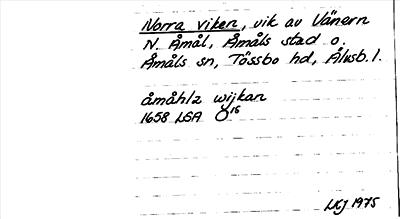 Norra viken, vik av Vänern
N. Åmål, Åmåls stad o.
Åmåls sn, Tössbo hd, Älvsb. l.
åmåhlz wijkan
1658 LSA Ö15
1975